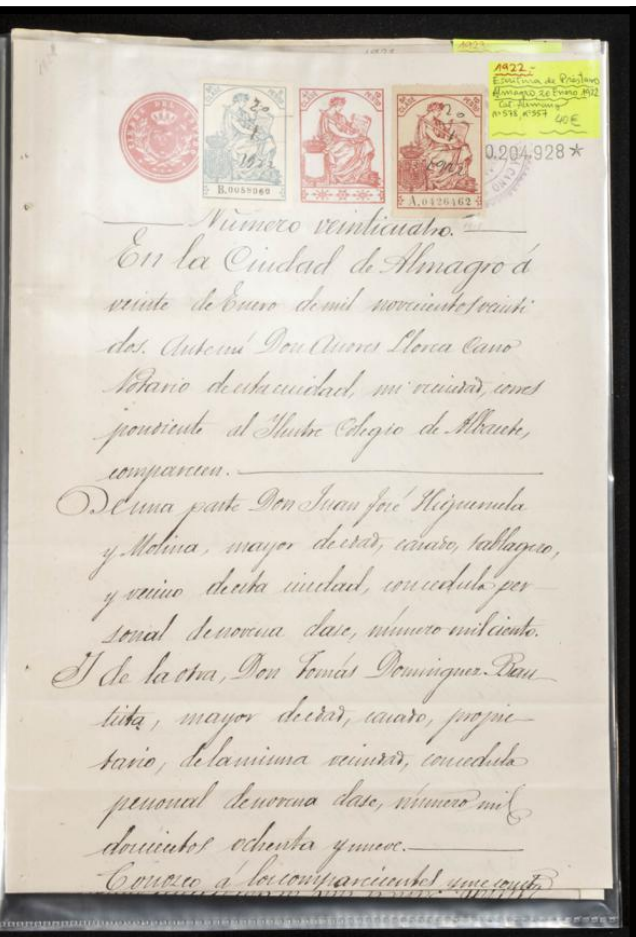 1922.-
Escritura de Préstamo
Almagro 20 Enero 1922
nº 578, nº 557 40€
0.204.928 *
20
1
1922
20
1
1922
B.0059062
A.0426462
Número veinticuatro.
En la Ciudad de Almagro á
veinte de Enero de mil novecientos veinti
dos. Ante mí Don Andres Llorca Cano
Notario de esta ciudad, mi vecindad, corres
pondiente al Ilustre Colegio de Albacete,
comparecen.
De una parte Don Juan José Higueruela
y Molina, mayor de edad, casado, tablagero,
y vecino de esta ciudad, con cedula per-
sonal de novena clase, número mil ciento.
Y de la otra, Don Tomás Dominguez Bau
tista, mayor de edad, casado, propie-
tario, de la misma vecindad, con cedula
personal de novena clase, número mil
doscientos ochenta y nueve.
Conozco á los comparecientes y me consta